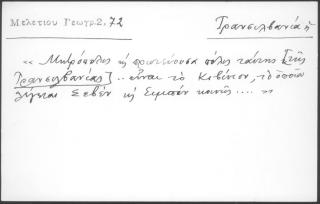 Μελετίου Γεωγρ. 2, 72
Τρανσυλβανία ἡ
« Μητρόπολις καὶ πρωτεύουσα πόλις ταύτης [τῆς
Τρανσυλβανίας] .. εἶναι τὸ Κιβίνιον, τὸ ὁποῖον
λέγεται Σεβὲν καὶ Σιμπὶν κοινῶς .... »